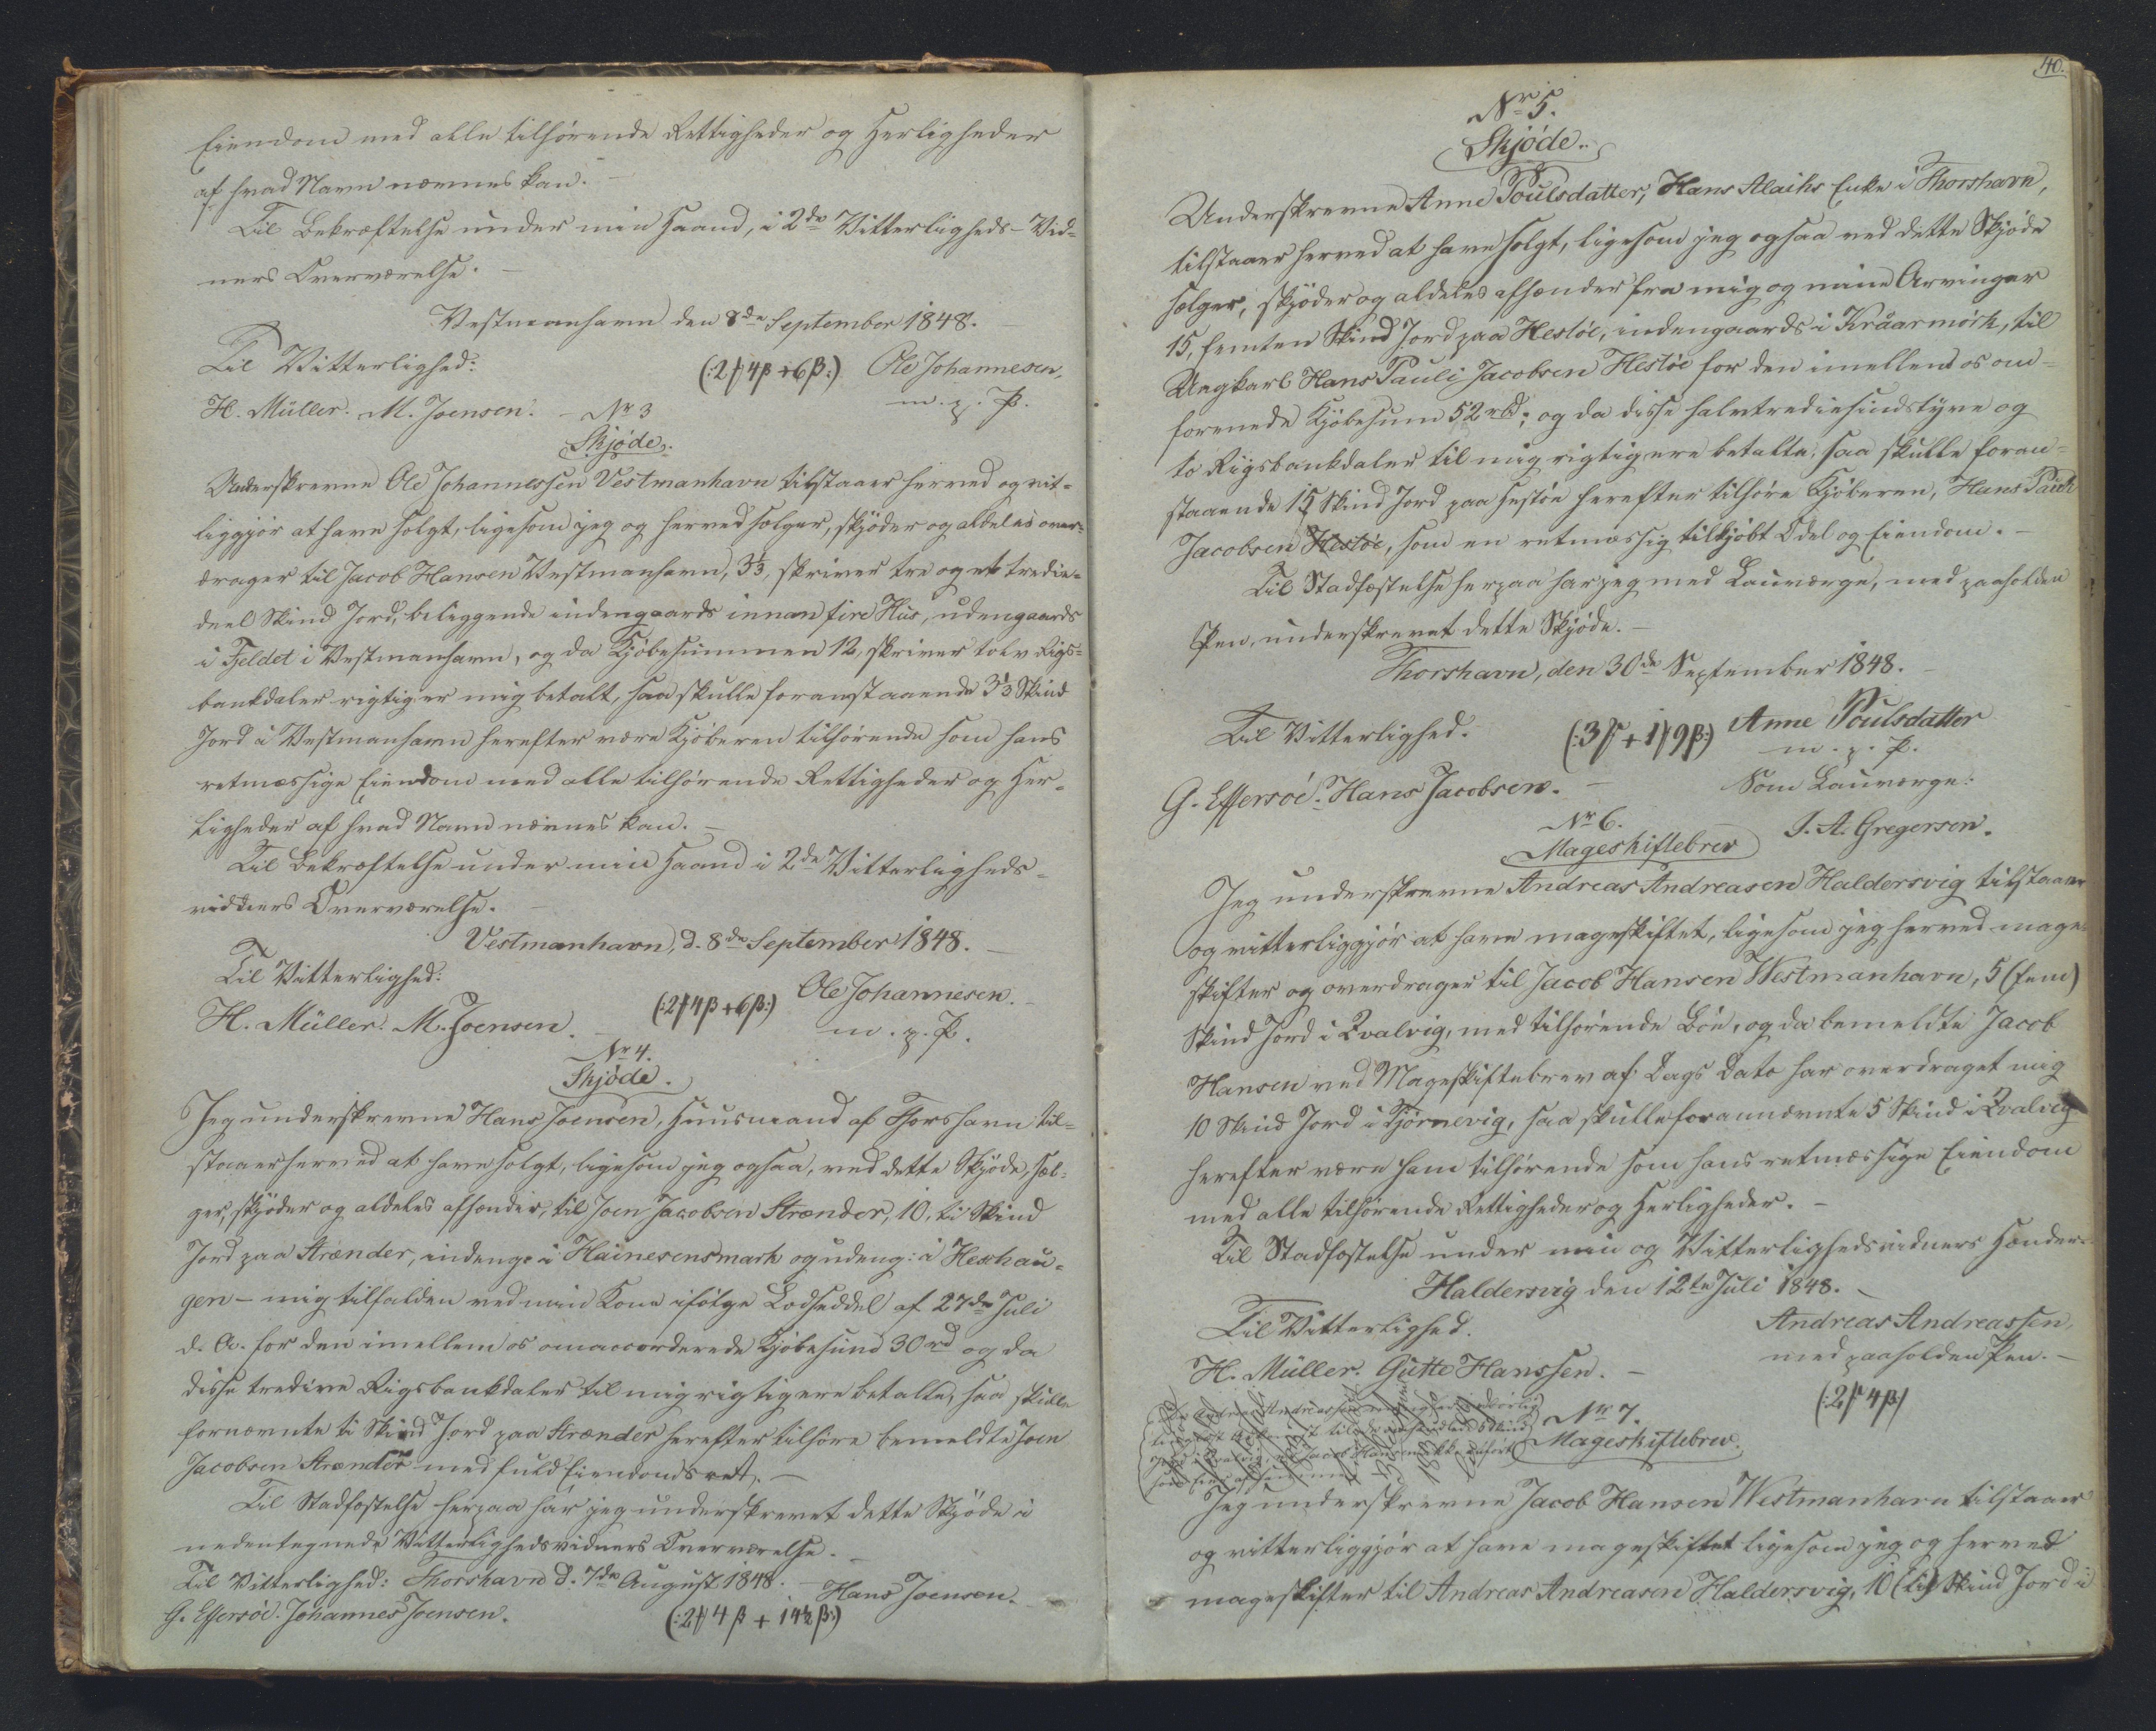 Eiendom med alle tilhørende Rettigheder og Herligheder
af hvad Navn nævnes kan. –
Til Bekræftelse under min Haand, i 2de Vitterligheds-Vid-
ners Overværelse. –
Vestmanhavn den 8de September 1848. –
Til Vitterlighed:
(:2 4β + 6β:) Ole Johannesen,
m. p. P.
H. Müller. M. Joensen. –
Nr 3
Skjøde.
Underskrevne Ole Johannessen Vestmanhavn tilstaaer herved og vit-
liggjør at have solgt, ligesom jeg og herved sælger, skjøder og aldeles over-
drager til Jacob Hansen Vestmanhavn, 3⅓, skriver tre og et tredie-
deel Skind Jord, beliggende indengaards innan fire Hus, udengaards
i Fjeldet i Vestmanhavn, og da Kjøbesummen 12, skriver tolv Rigs-
bankdaler rigtig er mig betalt, saa skulle foranstaaende 3⅓ Skind
Jord i Vestmanhavn herefter være Kjøberen tilhørende som hans
retmæssige Eiendom med alle tilhørende Rettigheder og Her-
ligheder af hvad Navn nævnes kan. –
Til Bekræftelse under min Haand i 2de Vitterligheds-
vidners Overværelse. –
Vestmanhavn, d. 8de September 1848. –
Til Vitterlighed:
(:2 4β + 6β:) Ole Johannesen. –
H. Müller. M. Joensen. –
m. p. P.
Nr 4.
Skjøde.
Jeg underskrevne Hans Joensen, Huusmand af Thorshavn til-
staaer herved at have solgt, ligesom jeg ogsaa, ved dette Skjøde, sæl-
ger, skjøder og aldeles afhænder, til Joen Jacobsen Strænder, 10, ti Skind
Jord paa Strænder, indeng: i Hainesensmark og udeng: i Hexhau-
gen – mig tilfalden ved min Kone ifølge Lodseddel af 27de Juli
d. A. for den imellem os omaccorderede Kjøbesum 30 rd og da
disse tredive Rigsbankdaler til mig rigtig ere betalte, saa skulle
fornævnte ti Skind Jord paa Strænder herefter tilhøre bemeldte Joen
Jacobsen Strænder med fuld Eiendomsret. –
Til Stadfæstelse herpaa har jeg underskrevet dette Skjøde i
nedentegnede Vitterlighedsvidners Overværelse. –
Til Vitterlighed: Thorshavn d. 7de August 1848. –
Hans Joensen. –
G. Effersöe. Johannes Joensen.
(:2 4β + 14½ β:)
40.
Nr 5.
Skjøde.
Underskrevne Anne Poulsdatter, Hans Enke i Thorshavn,
tilstaaer herved at have solgt, ligesom jeg ogsaa ved dette Skjøde
sælger, skjøder og aldeles afhænder fra mig og mine Arvinger
15, femten Skind Jord paa Hestöe, indengaards i Kráarmörk, til
Ungkarl Hans Pauli Jacobsen Hestöe for den imellem os om-
forenede Kjøbesum 52 rbd; og da disse halvtrediesindstyve og
to Rigsbankdaler til mig rigtig ere betalte, saa skulle foran-
staaende 15 Skind Jord paa Hestöe herefter tilhøre Kjøberen, Hans Pauli
Jacobsen Hestöe, som en retmæssig tilkjøbt Odel og Eiendom. –
Til Stadfæstelse herpaa har jeg med Lauværge, med paaholden
Pen, underskrevet dette Skjøde. –
Thorshavn, den 30de September 1848. –
Til Vitterlighed.
(:3 + 1 9β:) Anne Poulsdatter
m. p. P.
G. Effersöe. Hans Jacobsen. –
Som Lauværge:
Nr 6.
J. A. Gregersen.
Mageskiftebrev
Jeg underskrevne Andreas Andreasen Haldersvig tilstaaer
og vitterliggjør at have mageskiftet, ligesom jeg herved mage-
skifter og overdrager til Jacob Hansen Westmanhavn, 5 (fem)
Skind Jord i Qvalvig, med tilhørende Böe, og da bemeldte Jacob
Hansen ved Mageskiftebrev af Dags Dato har overdraget mig
10 Skind Jord i Tjørnevig, saa skulle forannævnte 5 Skind i Qvalvig
herefter være ham tilhørende som hans retmæssige Eiendom
med alle tilhørende Rettigheder og Herligheder. –
Til Stadfæstelse under min og Vitterlighedsvidners Hænder
Haldersvig den 12te Juli 1848. –
Til Vitterlighed.
Andreas Andreassen,
H. Müller. Gutte Hanssen. –
med paaholden Pen. –
(:2 4β)
Nr 7.
Mageskiftebrev.
Jeg underskrevne Jacob Hansen Westmanhavn tilstaaer
og vitterliggjør at have mageskiftet ligesom jeg og herved
mageskifter til Andreas Andreasen Haldersvig, 10 (ti) Skind Jord i